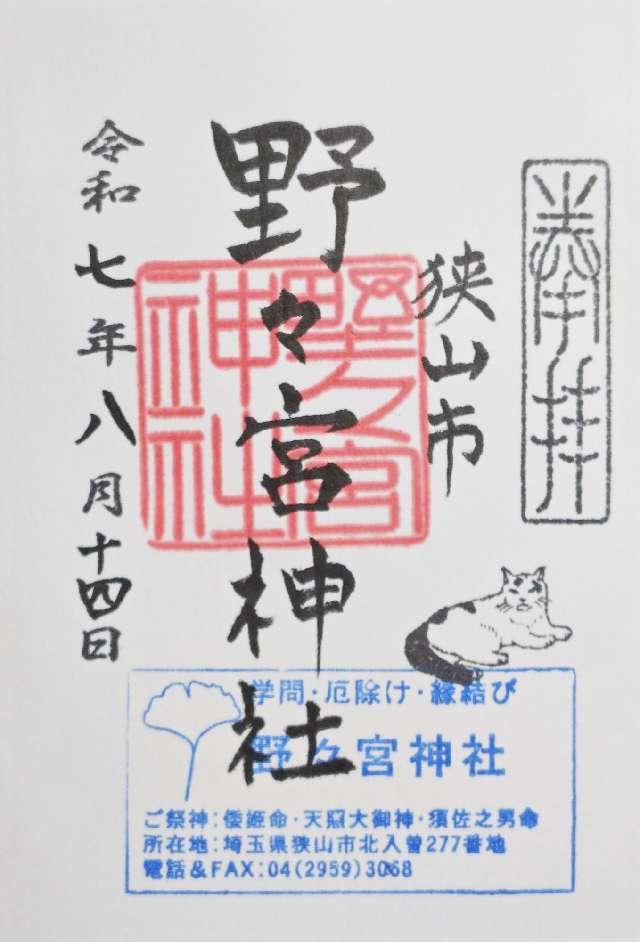 奉拝
狭山市
野々宮神社
野之宮
神社
令和七年八月十四日
学問・厄除け・縁結び
野々宮神社
ご祭神：倭姫命・天照大御神・須佐之男命
所在地：埼玉県狭山市北入曽277番地
電話＆FAX：04(2959)3068